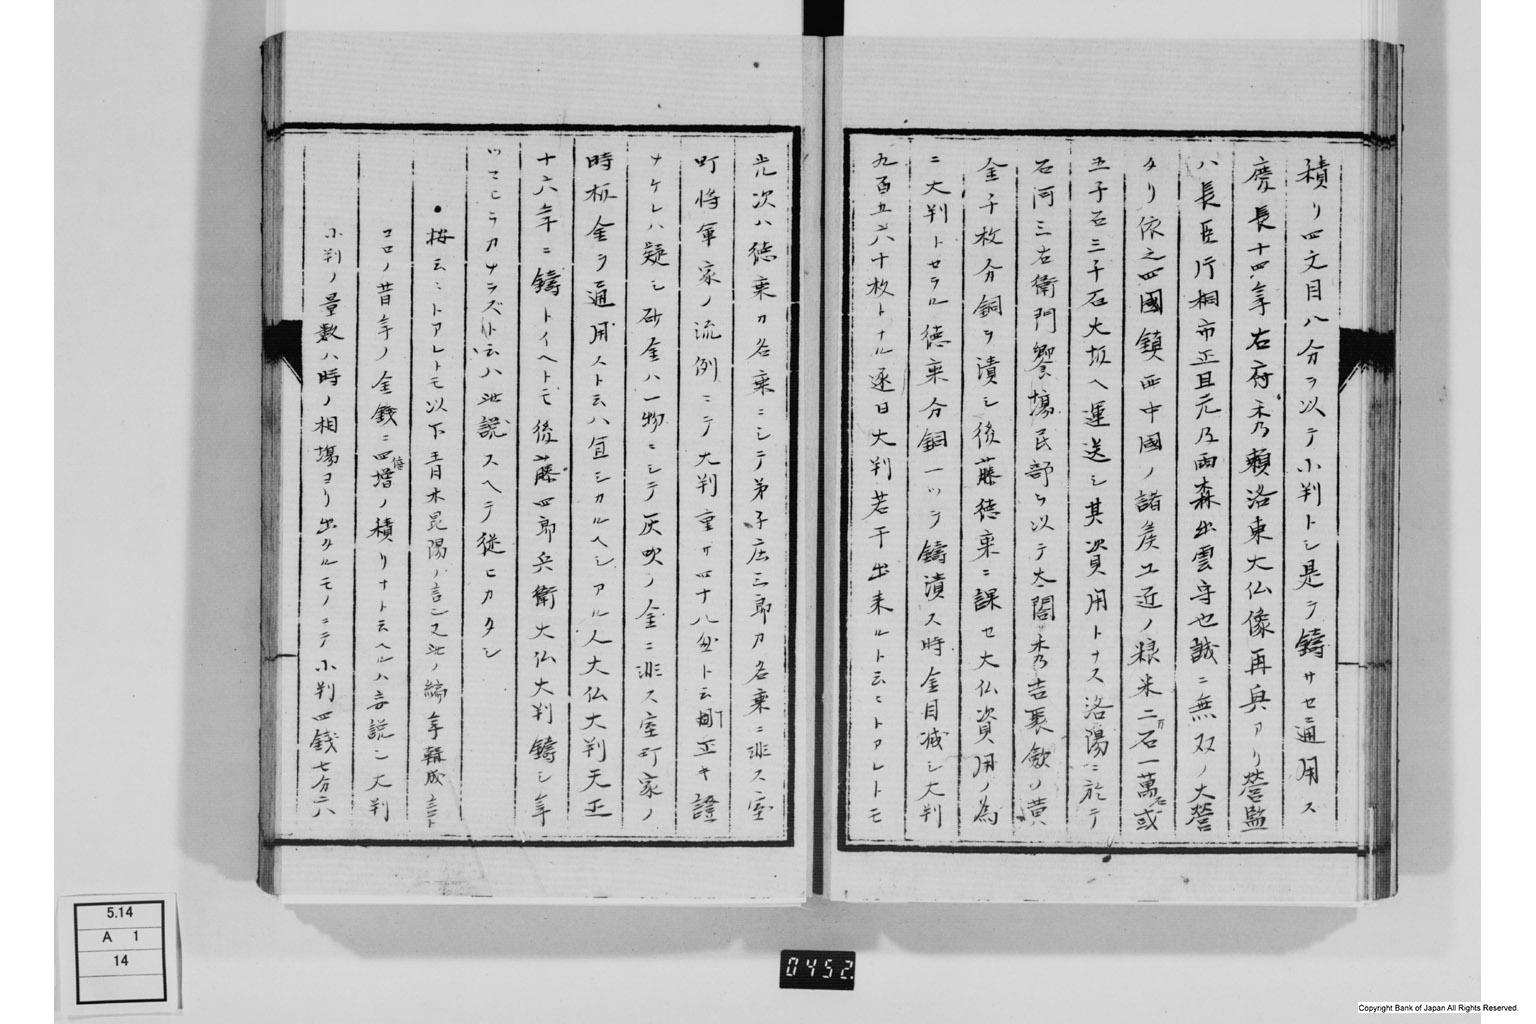 積リ四文目八分ヲ以テ小判トシ是テ鋳サセニ通用ス
慶長十四年右府秀頼洛東大仏像再興アリ営監
ハ長臣片桐市正且元乃雨森出雲守也誠ニ無双ノ大営
タリ依之四國鎮西中國ノ諸侯エ近ノ禄米二万石一萬石或
五千石三千石大坂ヘ運送シ其資用トナス洛陽ニ於テ
石河三右衛門饗場民部ヲ以テ太閤秀吉聚斂ノ黄
金千枚分銅ヲ潰シ後藤徳乗ニ課セ大仏資用ノ為
ニ大判トセラル徳乗分銅一ツヲ鋳潰ス時金目減シ大判
九百五六十枚トナル逐日大判若干出来ルト云コトアレトモ
光次ハ徳乗カ名乗ニシテ弟子庄三郎カ名乗ニ非ス室
町将軍家ノ流例ニテ大判重サ四十八匁ト云圓正キ證
ナケレハ疑シ砂金ハ一物ニシテ灰吹ノ金ニ非ス室町家ノ
時板金ヲ通用スト云ハ宜シカルヘシアル人大仏大判天正
十六年ニ鋳トイヘトモ後藤四郎兵衛大仏大判鋳シ年
ツマヒラカナラズト云ハ此説スヘテ従ヒカタシ
●按云コトアレトモ以下青木昆陽ノ言シ又此ノ編年輯成
コロノ昔年ノ金銭ニ四増倍ノ積リナト云ヘルハ言説シ大判
小判ノ量数ハ時ノ相場ヨリ出タルモノニテ小判四銭七分六
5.14
A 1
14
0452
Copyright Bank of Japan All Rights Reserved.